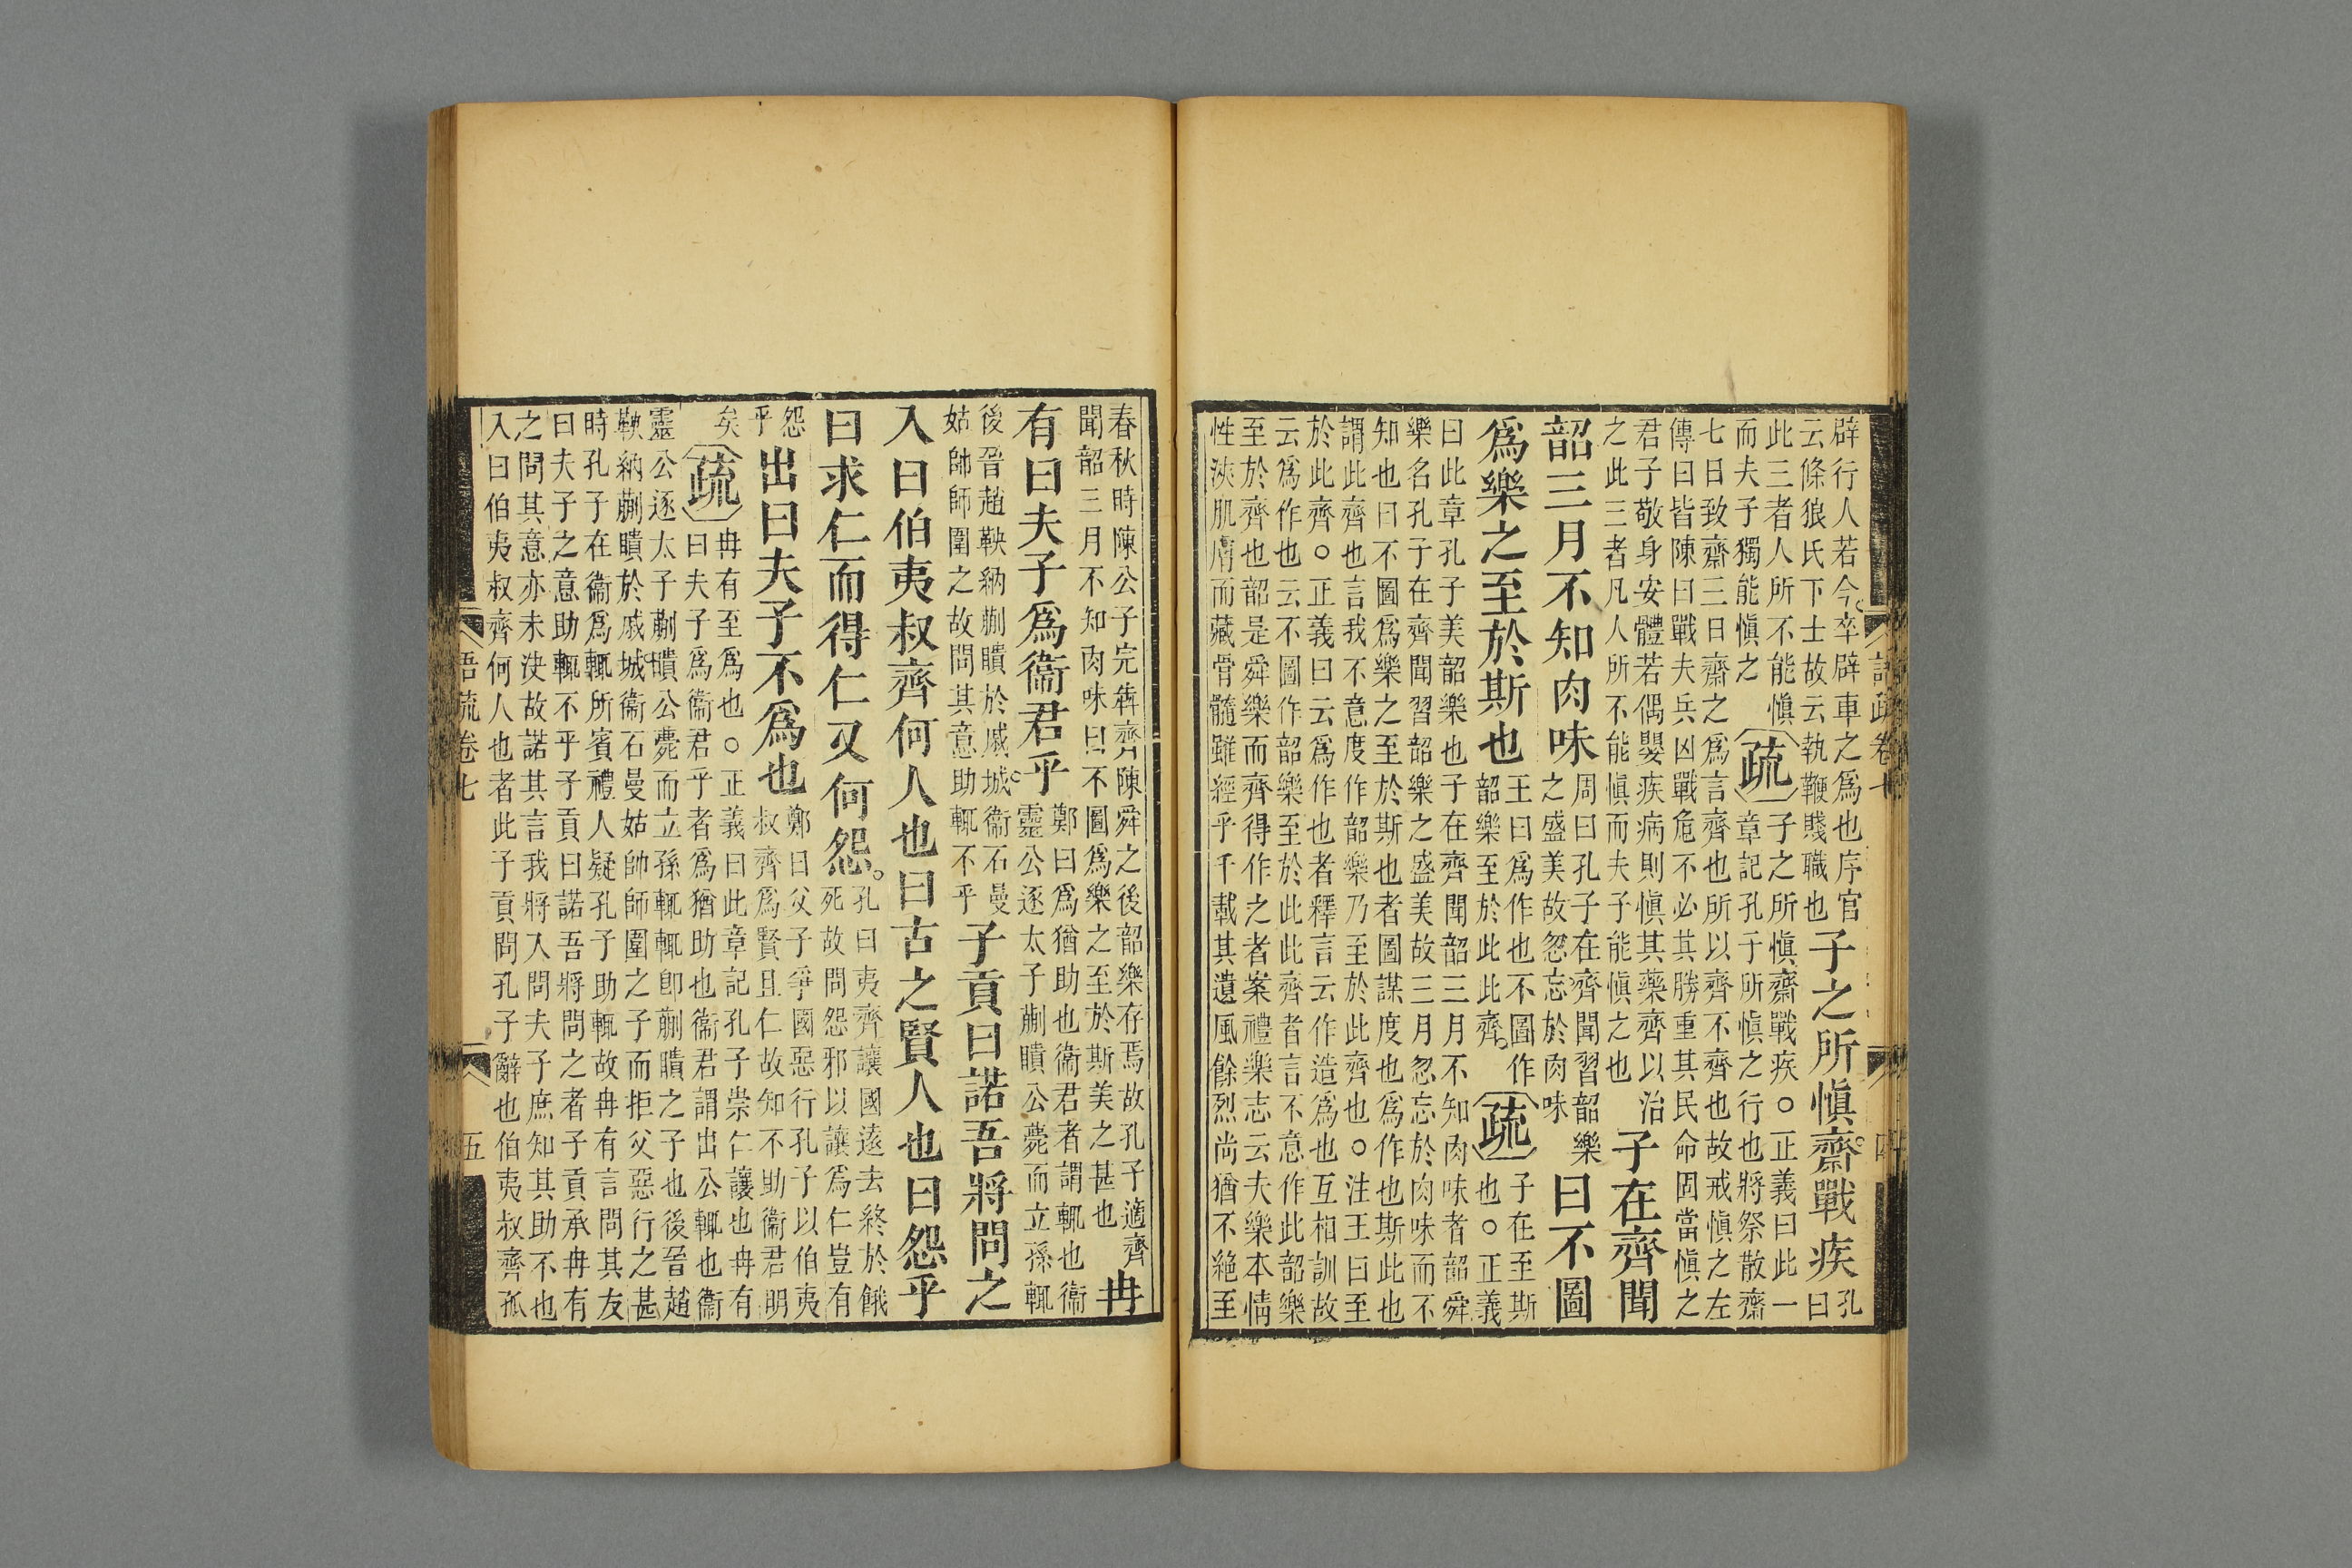 辟行人若今卒辟車之爲也序官
云條狼氏下士故云執鞭賤職也
子之所愼齋戰疾
孔
曰
此三者人所不能愼
而夫子獨能愼之
疏
子之所愼齋戰疾○正義曰此一
章記孔子所愼之行也將祭散齋
七日致齋三日齋之爲言齊也所以齊不齊也故戒愼之左
傳曰皆陳曰戰夫兵凶戰危不必其勝重其民命固當愼之
君子敬身安體若偶嬰疾病則愼其藥齊以治
之此三者凡人所不能愼而夫子能愼之也
子在齊聞
韶三月不知肉味
周曰孔子在齊聞習韶樂
之盛美故忽忘於肉味
曰不圖
爲樂之至於斯也
王曰爲作也不圖作
韶樂至於此此齊
疏
子在至斯
也○正義
曰此章孔子美韶樂也子在齊聞韶三月不知肉味者韶舜
樂名孔子在齊聞習韶樂之盛美故三月忽忘於肉味而不
知也曰不圖爲樂之至於斯也者圖謀度也爲作也斯此也
謂此齊也言我不意度作韶樂乃至於此齊也○注王曰至
於此齊○正義曰云爲作也者釋言云作造爲也互相訓故
云爲作也云不圖作韶樂至於此此齊者言不意作此韶樂
至於齊也韶是舜樂而齊得作之者案禮樂志云夫樂本情
性浹肌膚而藏骨髓雖經乎千載其遺風餘烈尚猶不絶至
春秋時陳公子完犇齊陳舜之後韶樂存焉故孔子適齊
聞韶三月不知肉味曰不圖爲樂之至於斯美之甚也
冉
有曰夫子爲衞君乎
鄭曰爲猶助也衞君者謂輒也衞
靈公逐太子蒯聵公薨而立孫輒
後晉趙鞅納蒯聵於戚城衞石曼
姑帥師圍之故問其意助輒不乎
子貢曰諾吾將問之
入曰伯夷叔齊何人也曰古之賢人也曰怨乎
曰求仁而得仁又何怨
孔曰夷齊讓國遠去終於餓
死故問怨邪以讓爲仁豈有
怨
乎
出曰夫子不爲也
鄭曰父子爭國惡行孔子以伯夷
叔齊爲賢且仁故知不助衞君明
矣
疏
冉有至爲也○正義曰此章記孔子崇仁讓也冉有
曰夫子爲衞君乎者爲猶助也衞君謂出公輒也衞
靈公逐太子蒯聵公薨而立孫輒輒卽蒯聵之子也後晉趙
鞅納蒯聵於戚城衞石曼姑帥師圍之子而拒父惡行之甚
時孔子在衞爲輒所賓禮人疑孔子助輒故冉有言問其友
曰夫子之意助輒不乎子貢曰諾吾將問之者子貢承冉有
之問其意亦未決故諾其言我將入問夫子庶知其助不也
入曰伯夷叔齊何人也者此子貢問孔子辭也伯夷叔齊孤
語疏卷七
五